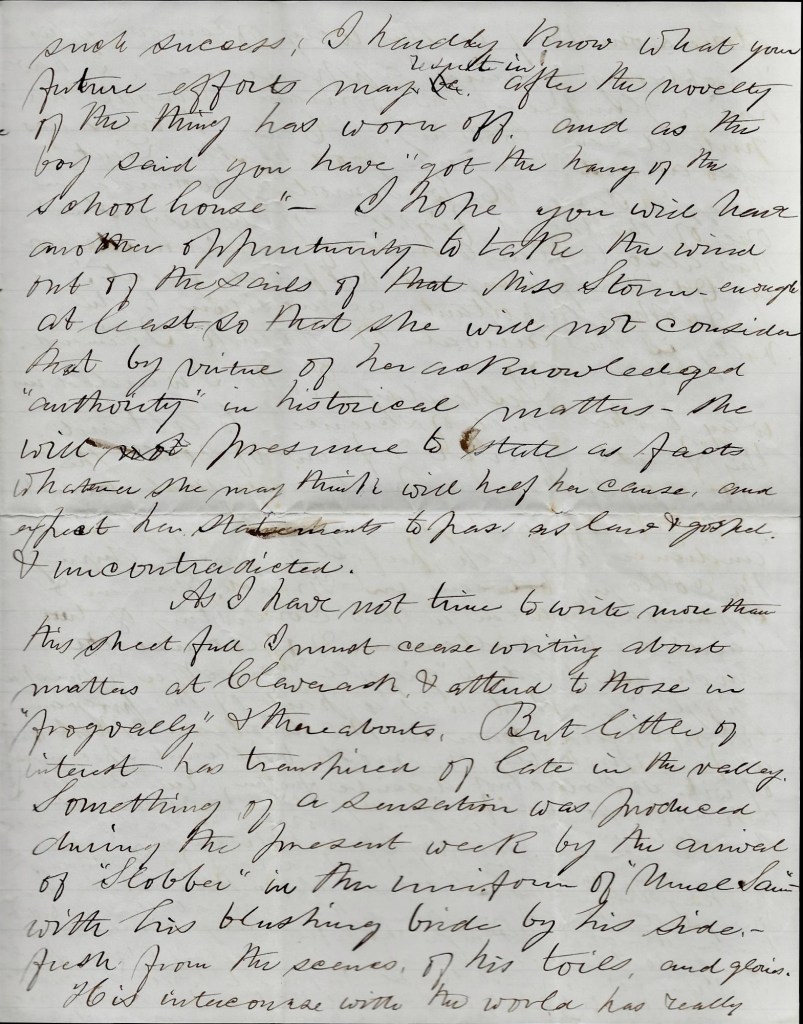 such success, I hardly know what your
future efforts may be. result in after the novelty
of the thing has worn off. and as the
boy said you have "got the hang of the
school house" — I hope you will have
another oppurtunity to take the wind
out of the sails of that Miss Storm - enough
at least so that she will not consider
that by virtue of her acknowledged
"authority" in historical matters - she
will not presume to state as facts
whatever she may think will help her cause, and
expect her statements to pass as law & gospel.
& uncontradicted.
As I have not time to write more than
this sheet full I must cease writing about
matters at Claverack, & attend to those in
"frogvally" & thereabouts. But little of
interest has transpired of late in the valley.
Something of a sensation was produced
during the present week by the arrival
of "Slobber" in the uniform of "Uncle Sam"
with his blushing bride by his side. -
fresh from the scenes, of his toils, and glories.
His intercourse with the world has really